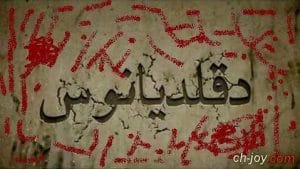 دقلديانوس
ch-joy.com